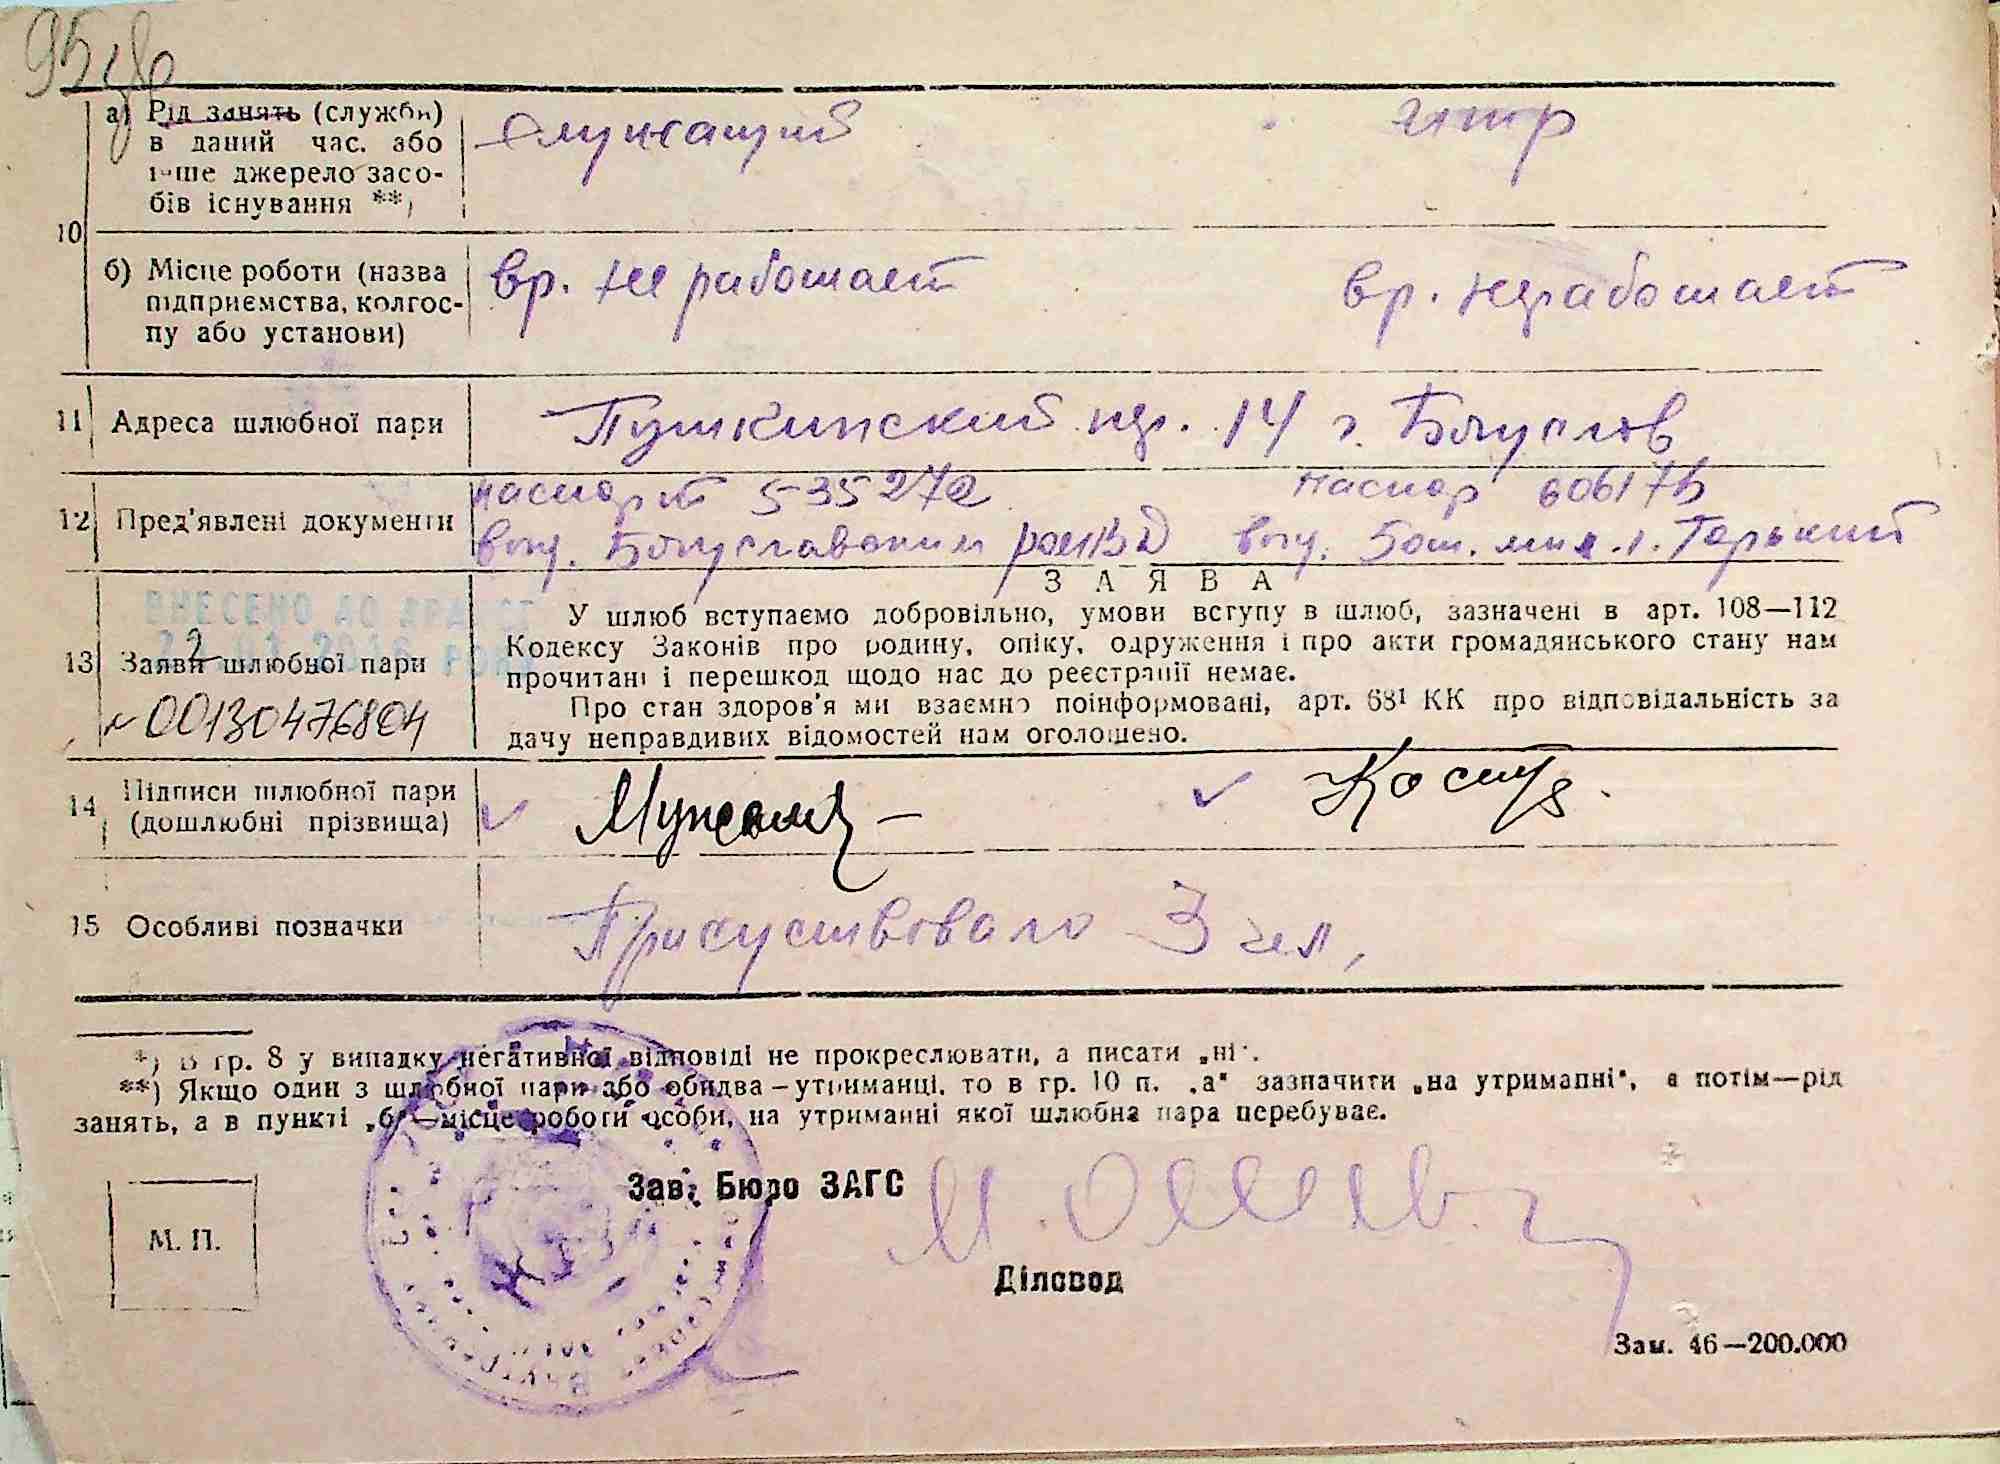 а) Рід занять (служби)
в даний час. або
інше джерело засо-
бів існування **)
служащий
итр
10
б) Місце роботи (назва
підприємства, колгос-
пу або установи)
вр. не работает
вр. не работает
11 Адреса шлюбної пари
Пушкинский пер. 14 г.
12 Пред'явлені документи
паспорт 535272
выд.
паспор 606175
выд. г. Горький
ВНЕСЕНО ДО
13 Заяви шлюбної пари
№ 00130476804
З А Я В А
У шлюб вступаємо добровільно, умови вступу в шлюб, зазначені в арт. 108—112
Кодексу Законів про родину, опіку, одруження і про акти громадянського стану нам
прочитані і перешкод щодо нас до реєстрації немає.
Про стан здоров'я ми взаємно поінформовані, арт. 68¹ КК про відповідальність за
дачу неправдивих відомостей нам оголошено.
14 Підписи шлюбної пари
(дошлюбні прізвища)
15 Особливі позначки
Присуствовало 3 чел,
*) В гр. 8 у випадку негативної відповіді не прокреслювати, а писати „ні".
**) Якщо один з шлюбної пари або обидва – утриманці, то в гр. 10 п. „а" зазначити „на утриманні", а потім—рід
занять, а в пункті „б" — місце роботи особи, на утриманні якої шлюбна пара перебуває.
М. П.
Зав. Бюро ЗАГС
Діловод
Зам. 46—200.000